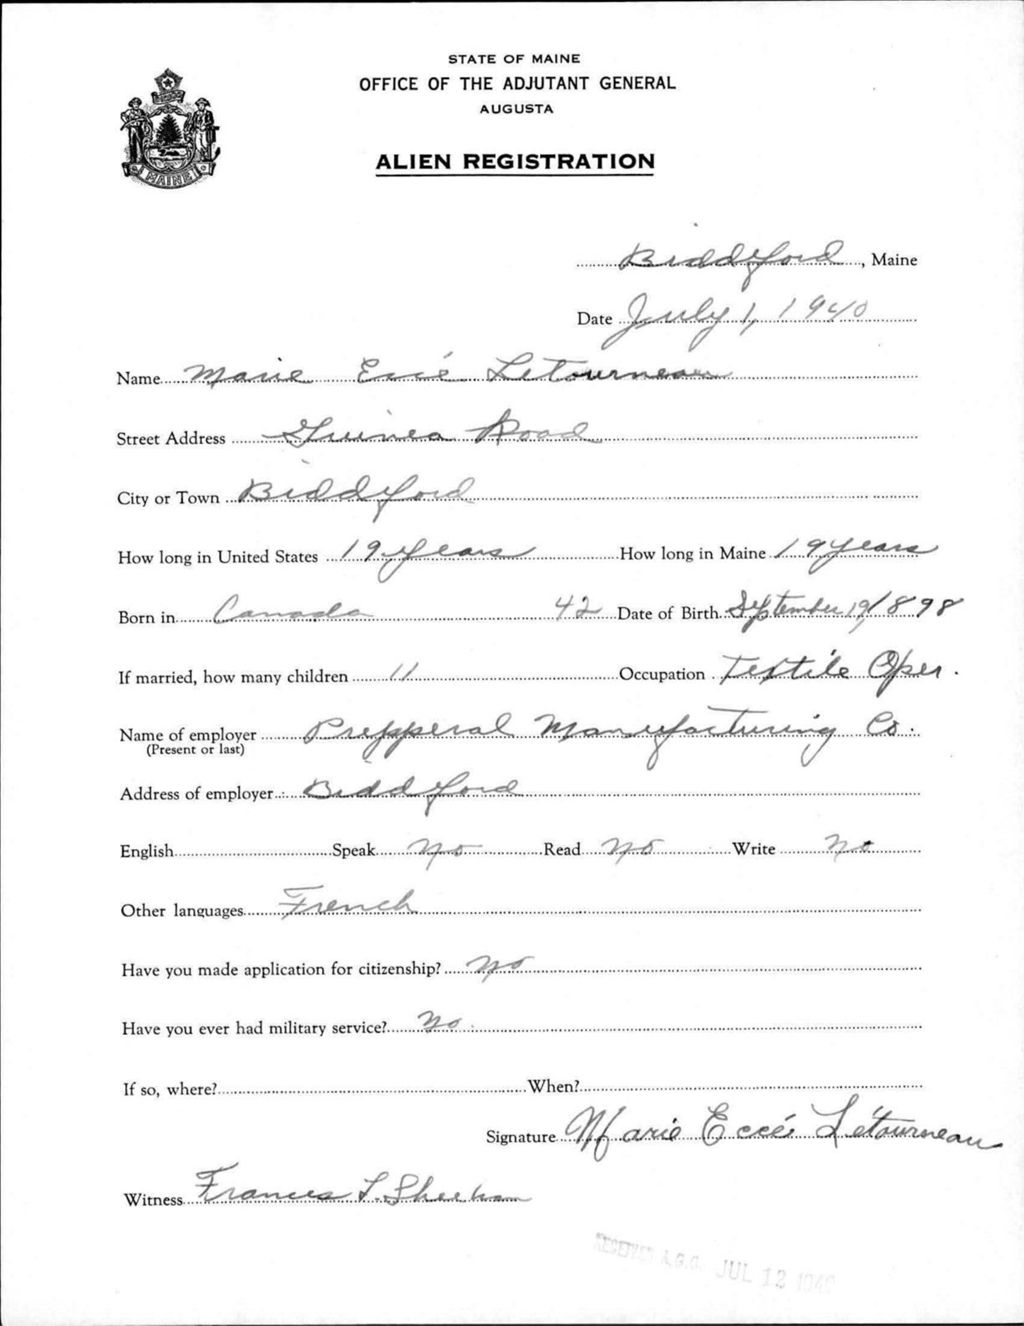 STATE OF MAINE
OFFICE OF THE ADJUTANT GENERAL
AUGUSTA
ALIEN REGISTRATION
MAINE
Biddeford, Maine
Date July 1, 1940
Name Marie Eccé Letourneau
Street Address Guinea Road
City or Town Biddeford
How long in United States 19 years How long in Maine 19 years
Born in Canada 42 Date of Birth September 19, 1898
If married, how many children 11 Occupation Textile Oper.
Name of employer Prepperal Manufacturing Co.
(Present or last)
Address of employer Biddeford
English Speak No Read No Write No
Other languages French
Have you made application for citizenship? No
Have you ever had military service? No
If so, where? When?
Signature Marie Eccé Létourneau
Witness Frances L. Sheehan
RECEIVED A.G.O. JUL 12 1940